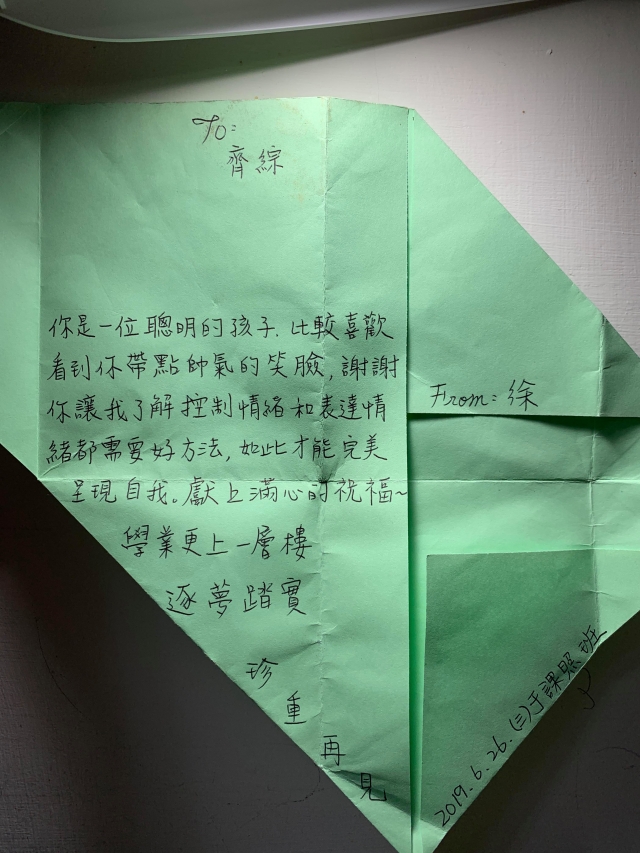 To:
齊綜
你是一位聰明的孩子. 比較喜歡
看到你帶點帥氣的笑臉, 謝謝
你讓我了解控制情緒和表達情
緒都需要好方法, 如此才能完美
呈現自我。獻上滿心的祝福~
學業更上一層樓
逐夢踏實
珍
重
再
見
From: 徐
2019. 6. 26. (三)于課照班